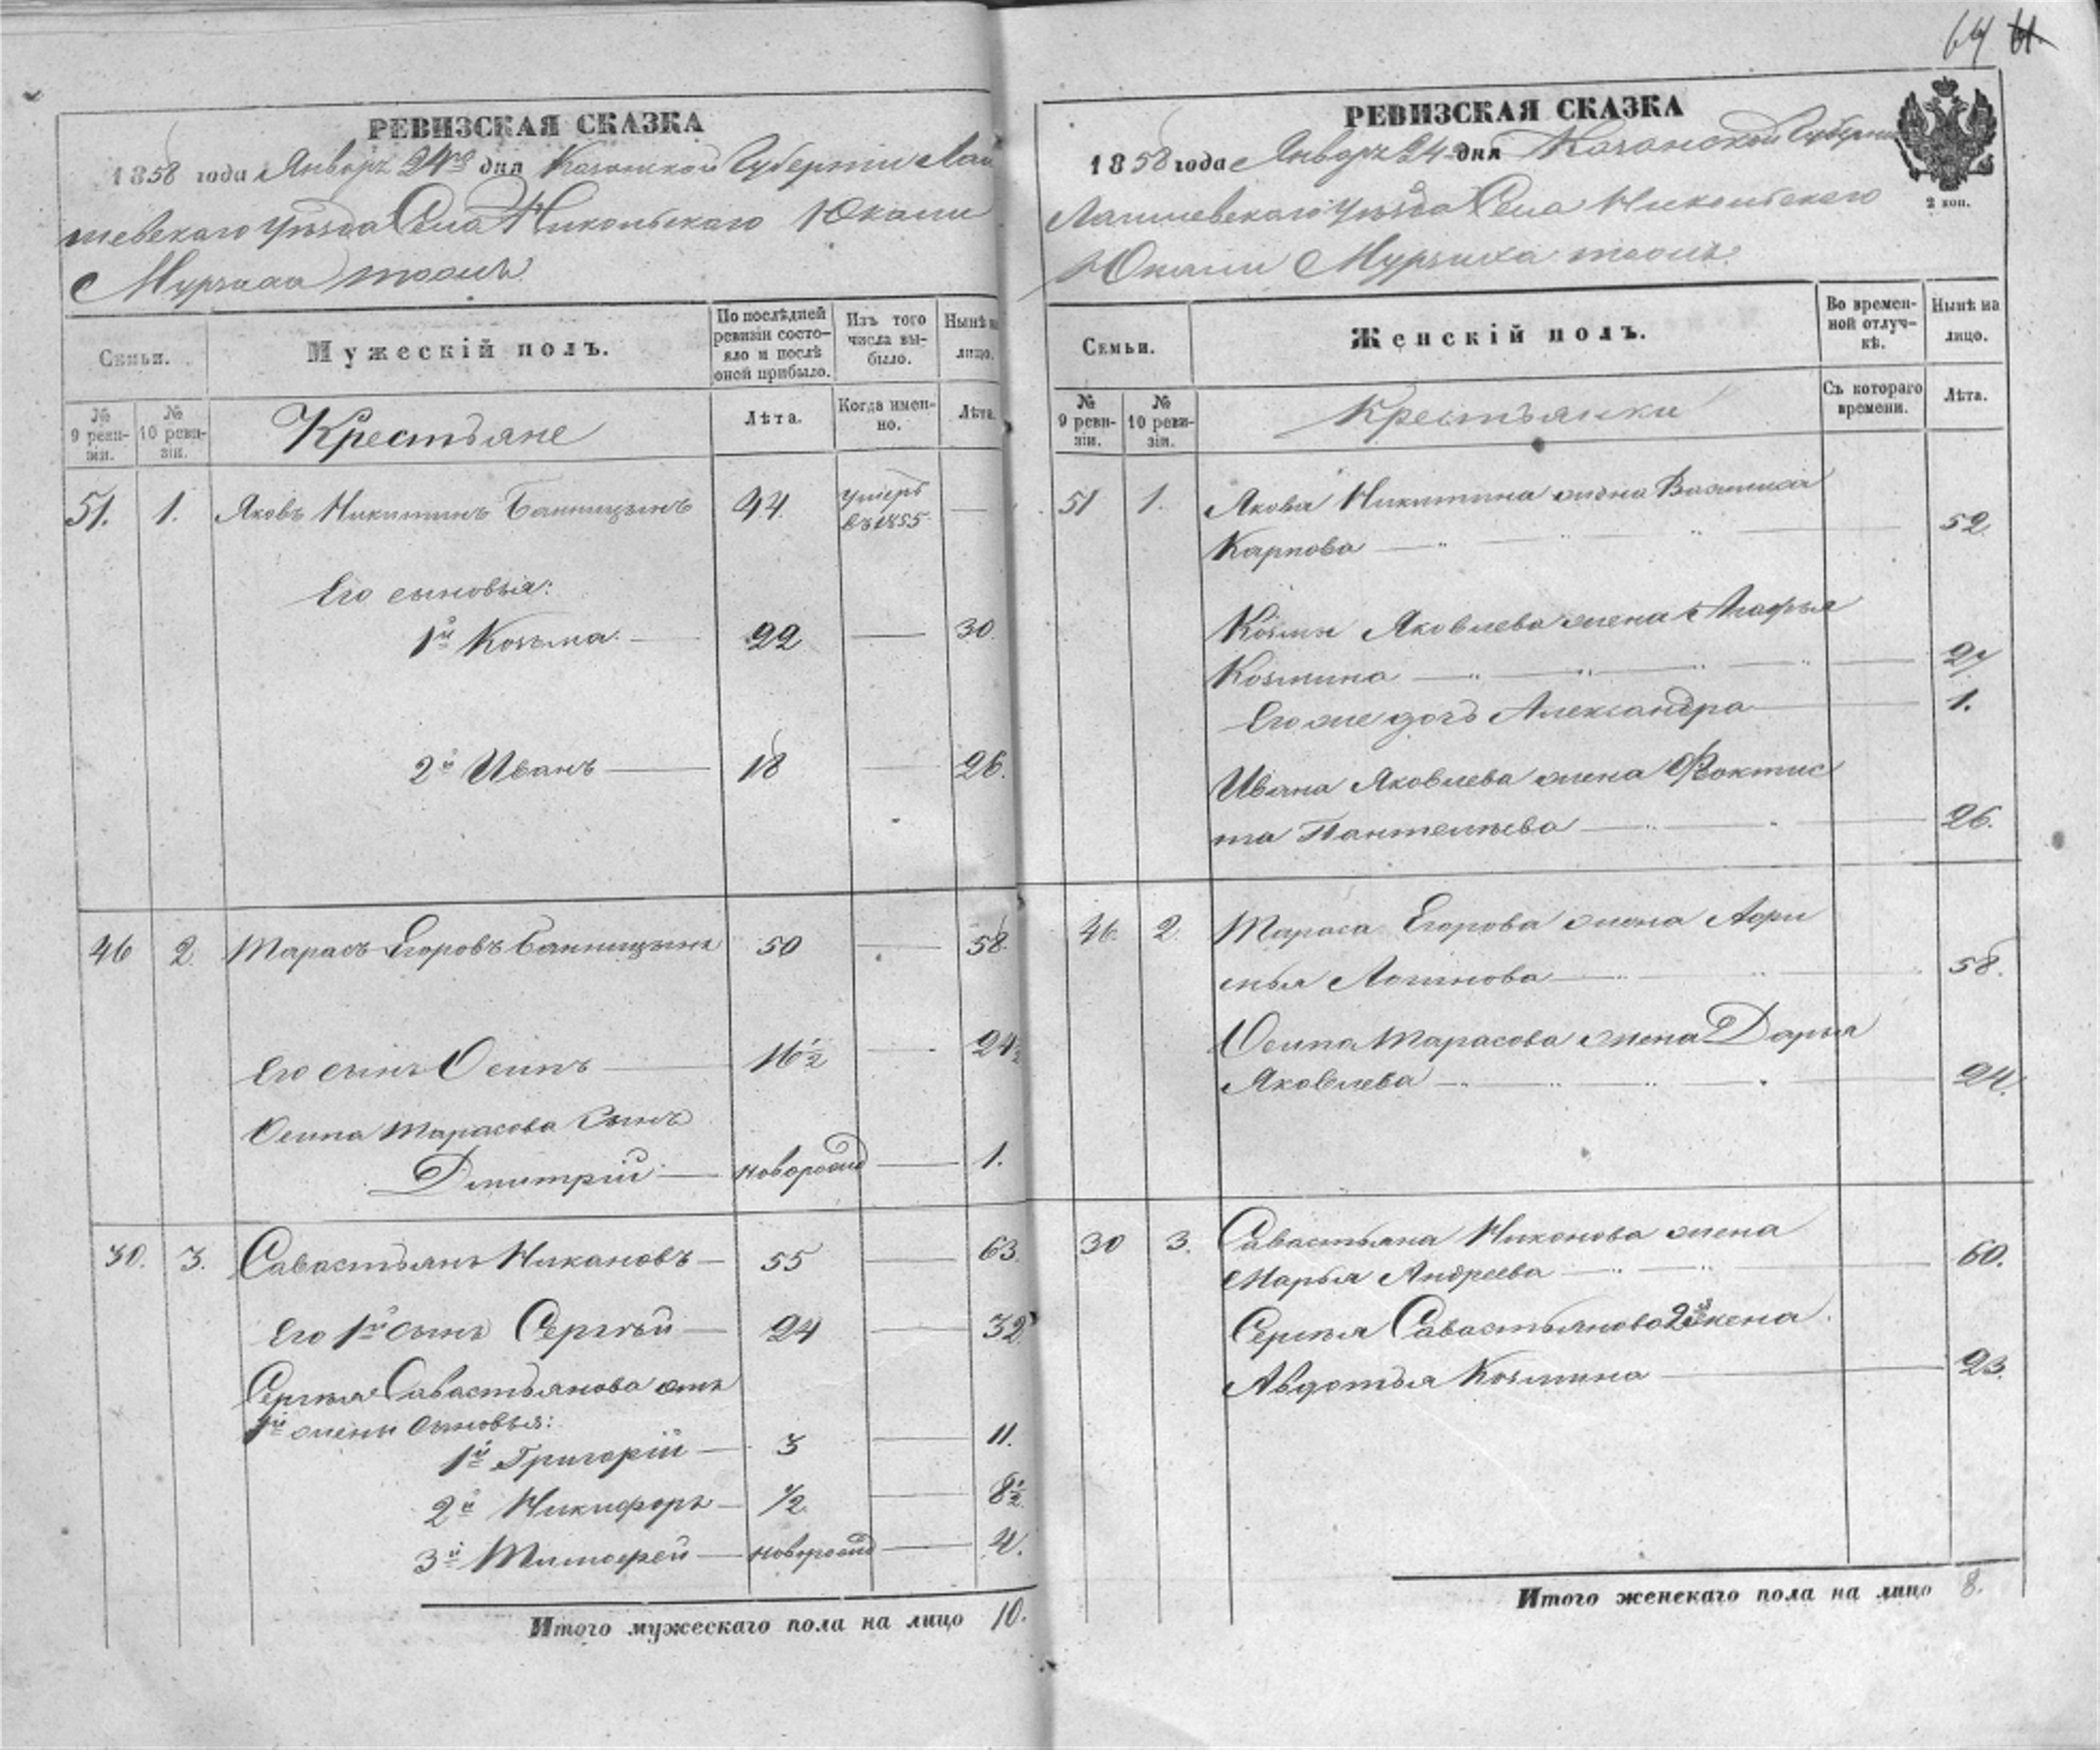 РЕВИЗСКАЯ СКАЗКА
1858 года Январь 24го дня Казанской Губерніи Лаи
шевскаго уѣзда Села Никольскаго Юкани
Мурзиха тожъ.
Семьи.
Мужескій полъ.
По послѣдней ревизіи состояло и послѣ оной прибыло.
Изъ того числа выбыло.
Нынѣ на лицо.
№ 9 ревизіи.
№ 10 ревизіи.
Крестьяне
Лѣта.
Когда именно.
Лѣта.
51. 1. Яковъ Никитинъ 44. умеръ въ 1855 —
Его сыновья:
1й Козьма — 22 — 30.
2й Иванъ — 18 — 26.
46 2. Тарасъ Егоровъ 50 — 58.
Его сынъ Осипъ — 16½ — 24½
Осипа Тарасова сынъ
Дмитрій — новорожд — 1.
30. 3. Савастьянъ Никановъ — 55 — 63.
Его 1й сынъ Сергѣй — 24 — 32
Сергѣя Савастьянова отъ
1й жены сыновья:
1й Григорій — 3 — 11.
2й Никифоръ — ½ — 8½.
3й Тимофей — новорожд — 4.
Итого мужескаго пола на лицо 10.
64 61.
РЕВИЗСКАЯ СКАЗКА
1858 года Январь 24 дня Казанской Губерніи
Лаишевскаго уѣзда Села Никольскаго
Юкани Мурзиха тожъ.
2 коп.
Семьи.
Женскій полъ.
Во временной отлучкѣ.
Нынѣ на лицо.
№ 9 ревизіи.
№ 10 ревизіи.
Крестьянки
Съ котораго времени.
Лѣта.
51 1. Якова Никитина жена Василиса
Карпова — 52.
Козмы Яковлева жена Марья
Козмина — 27
Его же дочь Александра — 1.
Ивана Яковлева жена Фѳоктис
та Пантелѣева — 26.
46. 2. Тараса Егорова жена Афи
мья Логинова — 58.
Осипа Тарасова жена Дарья
Яковлева — 24.
30 3. Савастьяна Никонова жена
Марья Андреева — 60.
Сергѣя Савастьянова 2я жена
Авдотья Козмина — 23.
Итого женскаго пола на лицо 8.